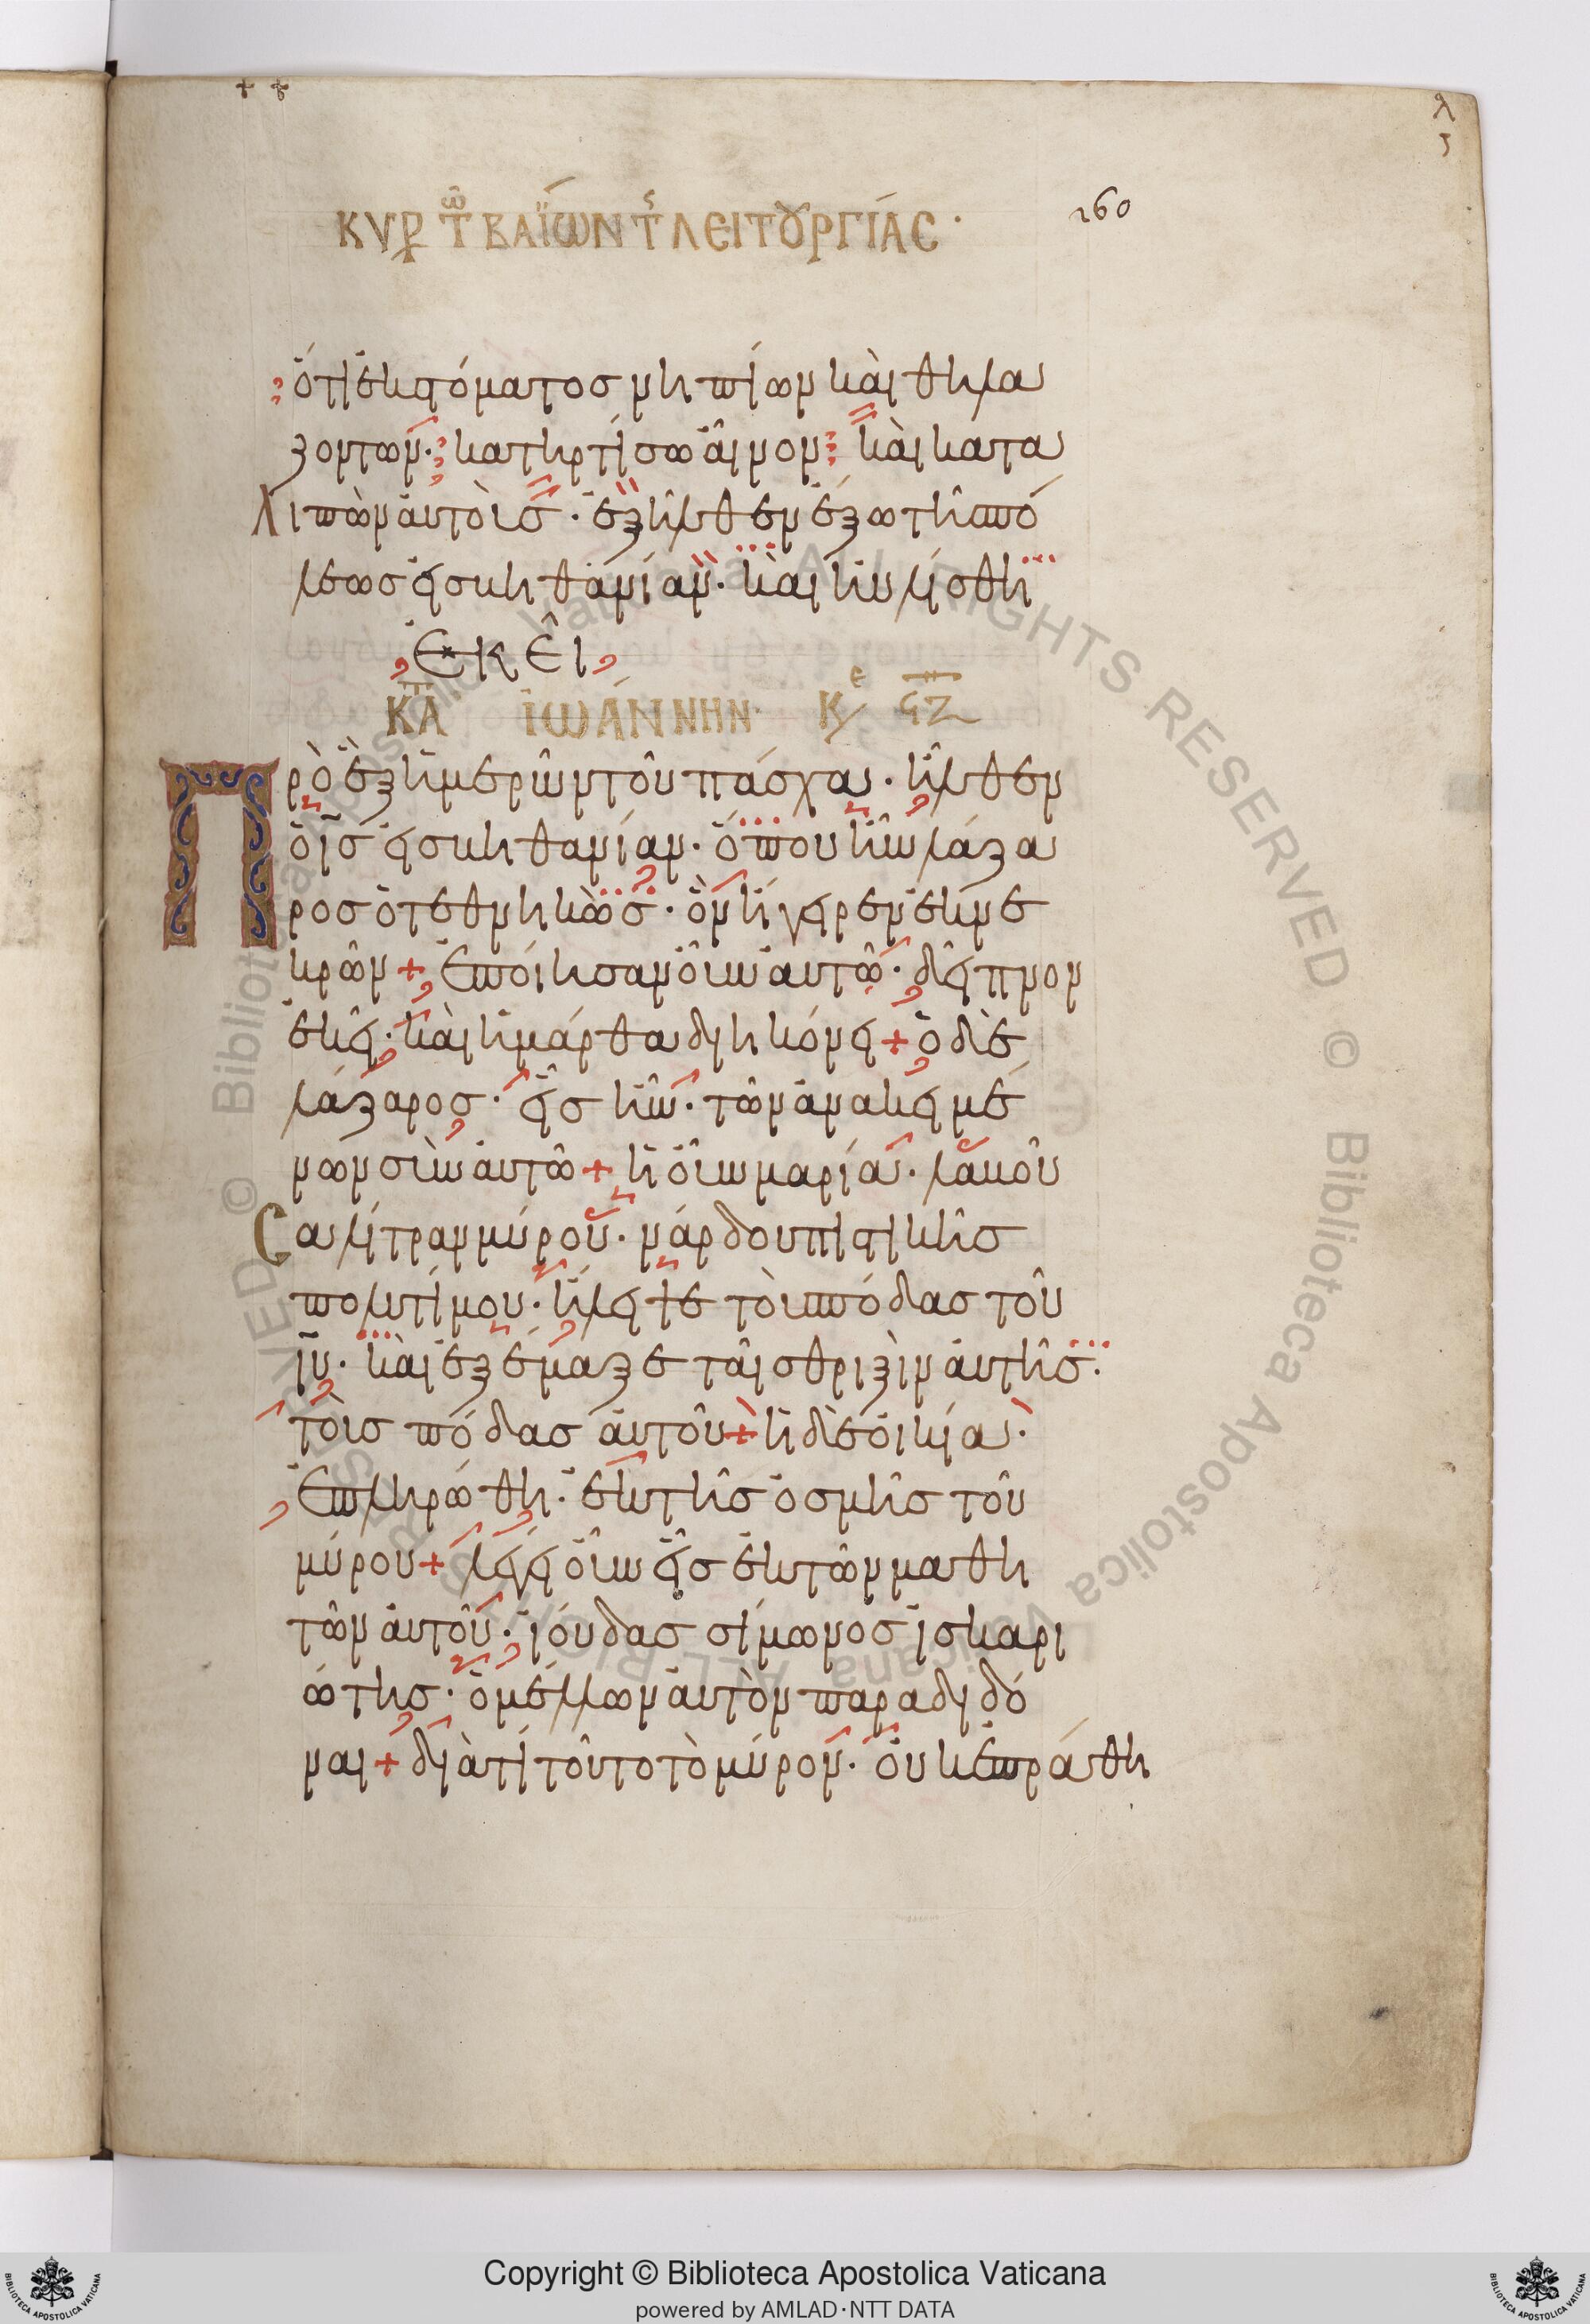 λ
ς
160
ΚΥΡ Τῶ ΒΑΪΩΝ Τς ΛΕΙΤΟΥΡΓΊΑC ·
ὅτι ἐκ στόματος νηπίων καὶ θηλα
ζοντων· κατηρτίσω αἶνον· καὶ κατα
λιπὼν ἀυτοὶς · ἐξῆλθεν ἔξω τῆς πό
λεως εἰς κηθανίαν · καὶ ηὐλίσθη
ἘΚΕ͂Ι
ΚΑ ἸΩΆΝΝΗΝ Κε ϚΖ
Πρὸ ἓξ ἡμερῶν τοῦ πάσχα · ἦλθεν
ὁ ις εἰς κηθανίαν · ὅπου ἦν λάζα
ρος ὁ τεθνηκὼς · ὃν ἤγειρεν ἐκ νε
κρῶν + ἐπόιησαν οὖν αὐτῶ · δεῖπνον
ἐκεῖ · καὶ ἡ μάρθα διηκόνει + ὁ δὲ
λάζαρος · εἷς ἦν · τῶν ἀνακειμέ
νων σὺν αὐτῶ + ἡ οὖν μαρία · λαβοῦ
σα λίτραν μύρου · νάρδου πιστικῆς
πολυτίμου · ἤλειψε τοὺς πόδας τοῦ
ιυ · καὶ ἐξέμαξε ταῖς θριξὶν ἀυτῆς ·
τοὺς πόδας ἀυτοῦ + ἡ δὲ ὀικία ·
ἐπληρώθη · ἐκ τῆς ὀσμῆς τοῦ
μύρου + λέγει οὖν εἷς ἐκ τῶν μαθη
τῶν ἀυτοῦ · ἰούδας σίμωνος ἰσκαρι
ώτης · ὁ μέλλων ἀυτὸν παραδιδό
ναι + διὰ τί τοῦτο τὸ μύρον · οὐκ ἐπράθη
© Biblioteca Apostolica Vaticana ALL RIGHTS RESERVED
Copyright © Biblioteca Apostolica Vaticana
powered by AMLAD·NTT DATA
BIBLIOTECA APOSTOLICA VATICANA
BIBLIOTECA APOSTOLICA VATICANA